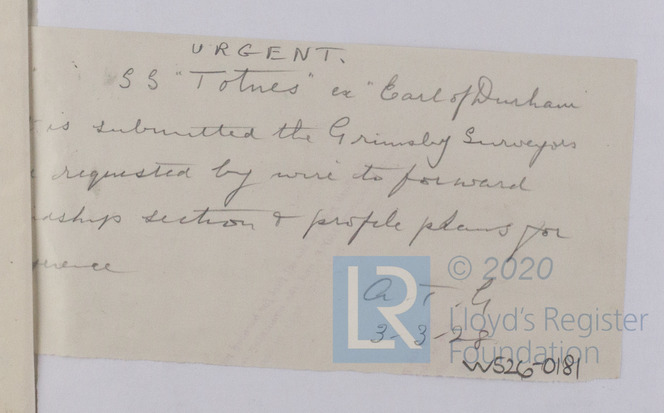 URGENT.
SS "Totnes" ex "Earl of Durham
is submitted the Grimsby Surveyors
requested by wire to forward
idship section & profile plans for
erence
A. T. G
3-3-28
LR
© 2020
Lloyd's Register
Foundation
WS26-0181